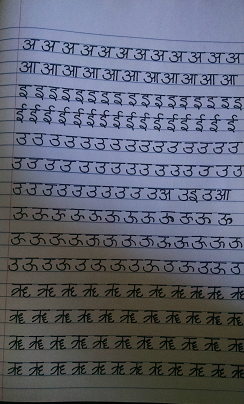 अ अ अ अ अ अ अ अ अ अ अ अ अ
आ आ आ आ आ आ आ आ आ आ आ
इ इ इ इ इ इ इ इ इ इ इ इ इ इ इ इ इ
ई ई ई ई ई ई ई ई ई ई ई ई ई ई ई ई
उ उ उ उ उ उ उ उ उ उ उ उ उ उ
उ उ उ उ उ उ उ उ उ उ उ उ उ उ
उ उ उ उ उ उ उ उ उ उअ उइउआ
ऊ ऊ ऊ ऊ ऊ ऊ ऊ ऊ ऊ ऊ ऊ ऊ ऊ
ऊ ऊ ऊ ऊ ऊ ऊ ऊ ऊ ऊ ऊ ऊ ऊ ऊ
उ ऊ उ ऊ उ ऊ उ ऊ उ ऊ उ ऊ उ ऊ
ऋ ऋ ऋ ऋ ऋ ऋ ऋ ऋ ऋ ऋ ऋ
ऋ ऋ ऋ ऋ ऋ ऋ ऋ ऋ ऋ ऋ ऋ
ऋ ऋ ऋ ऋ ऋ ऋ ऋ ऋ ऋ ऋ ऋ
ऋ ऋ ऋ ऋ ऋ ऋ ऋ ऋ ऋ ऋ ऋ